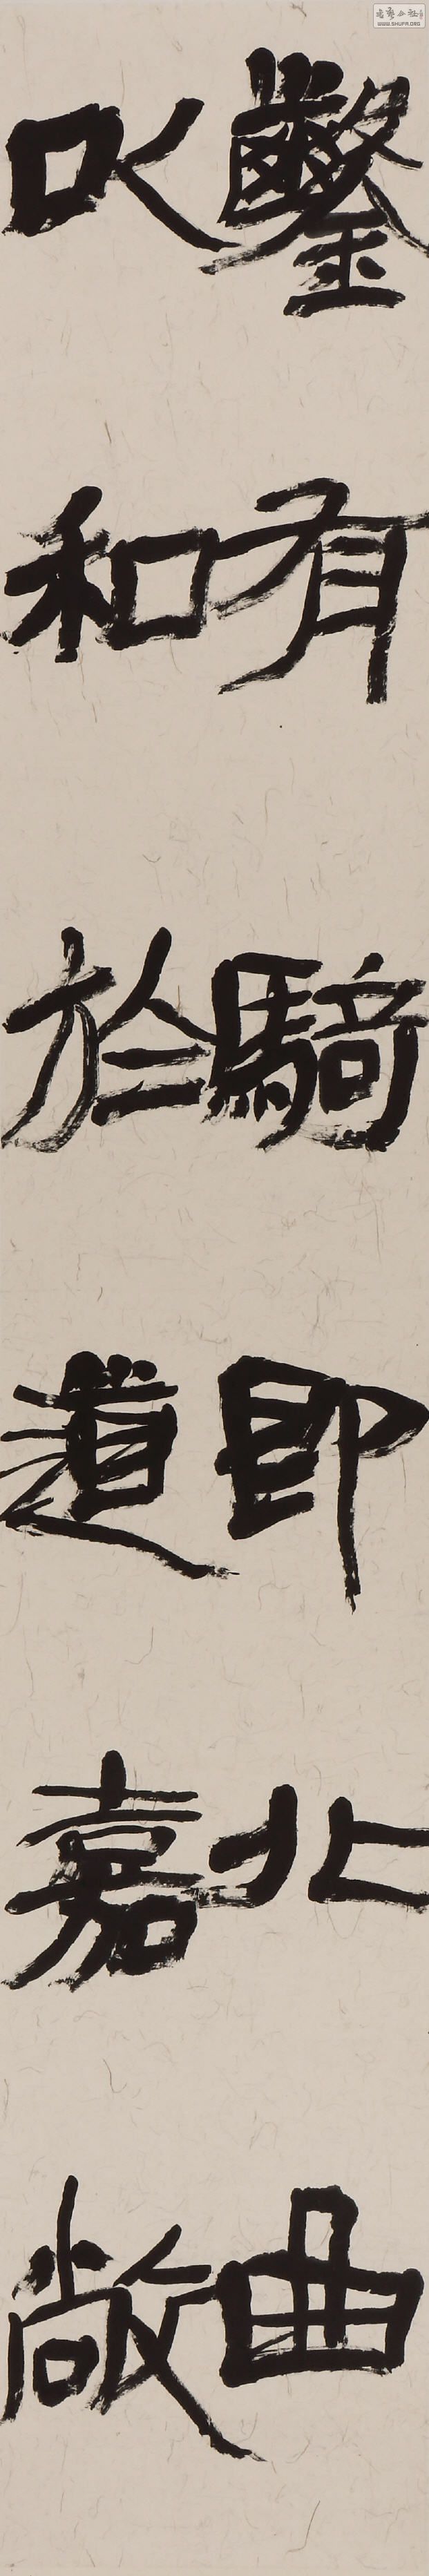 鑿有騎即北曲
㕥和於道嘉敞
WWW.SHUFA.ORG